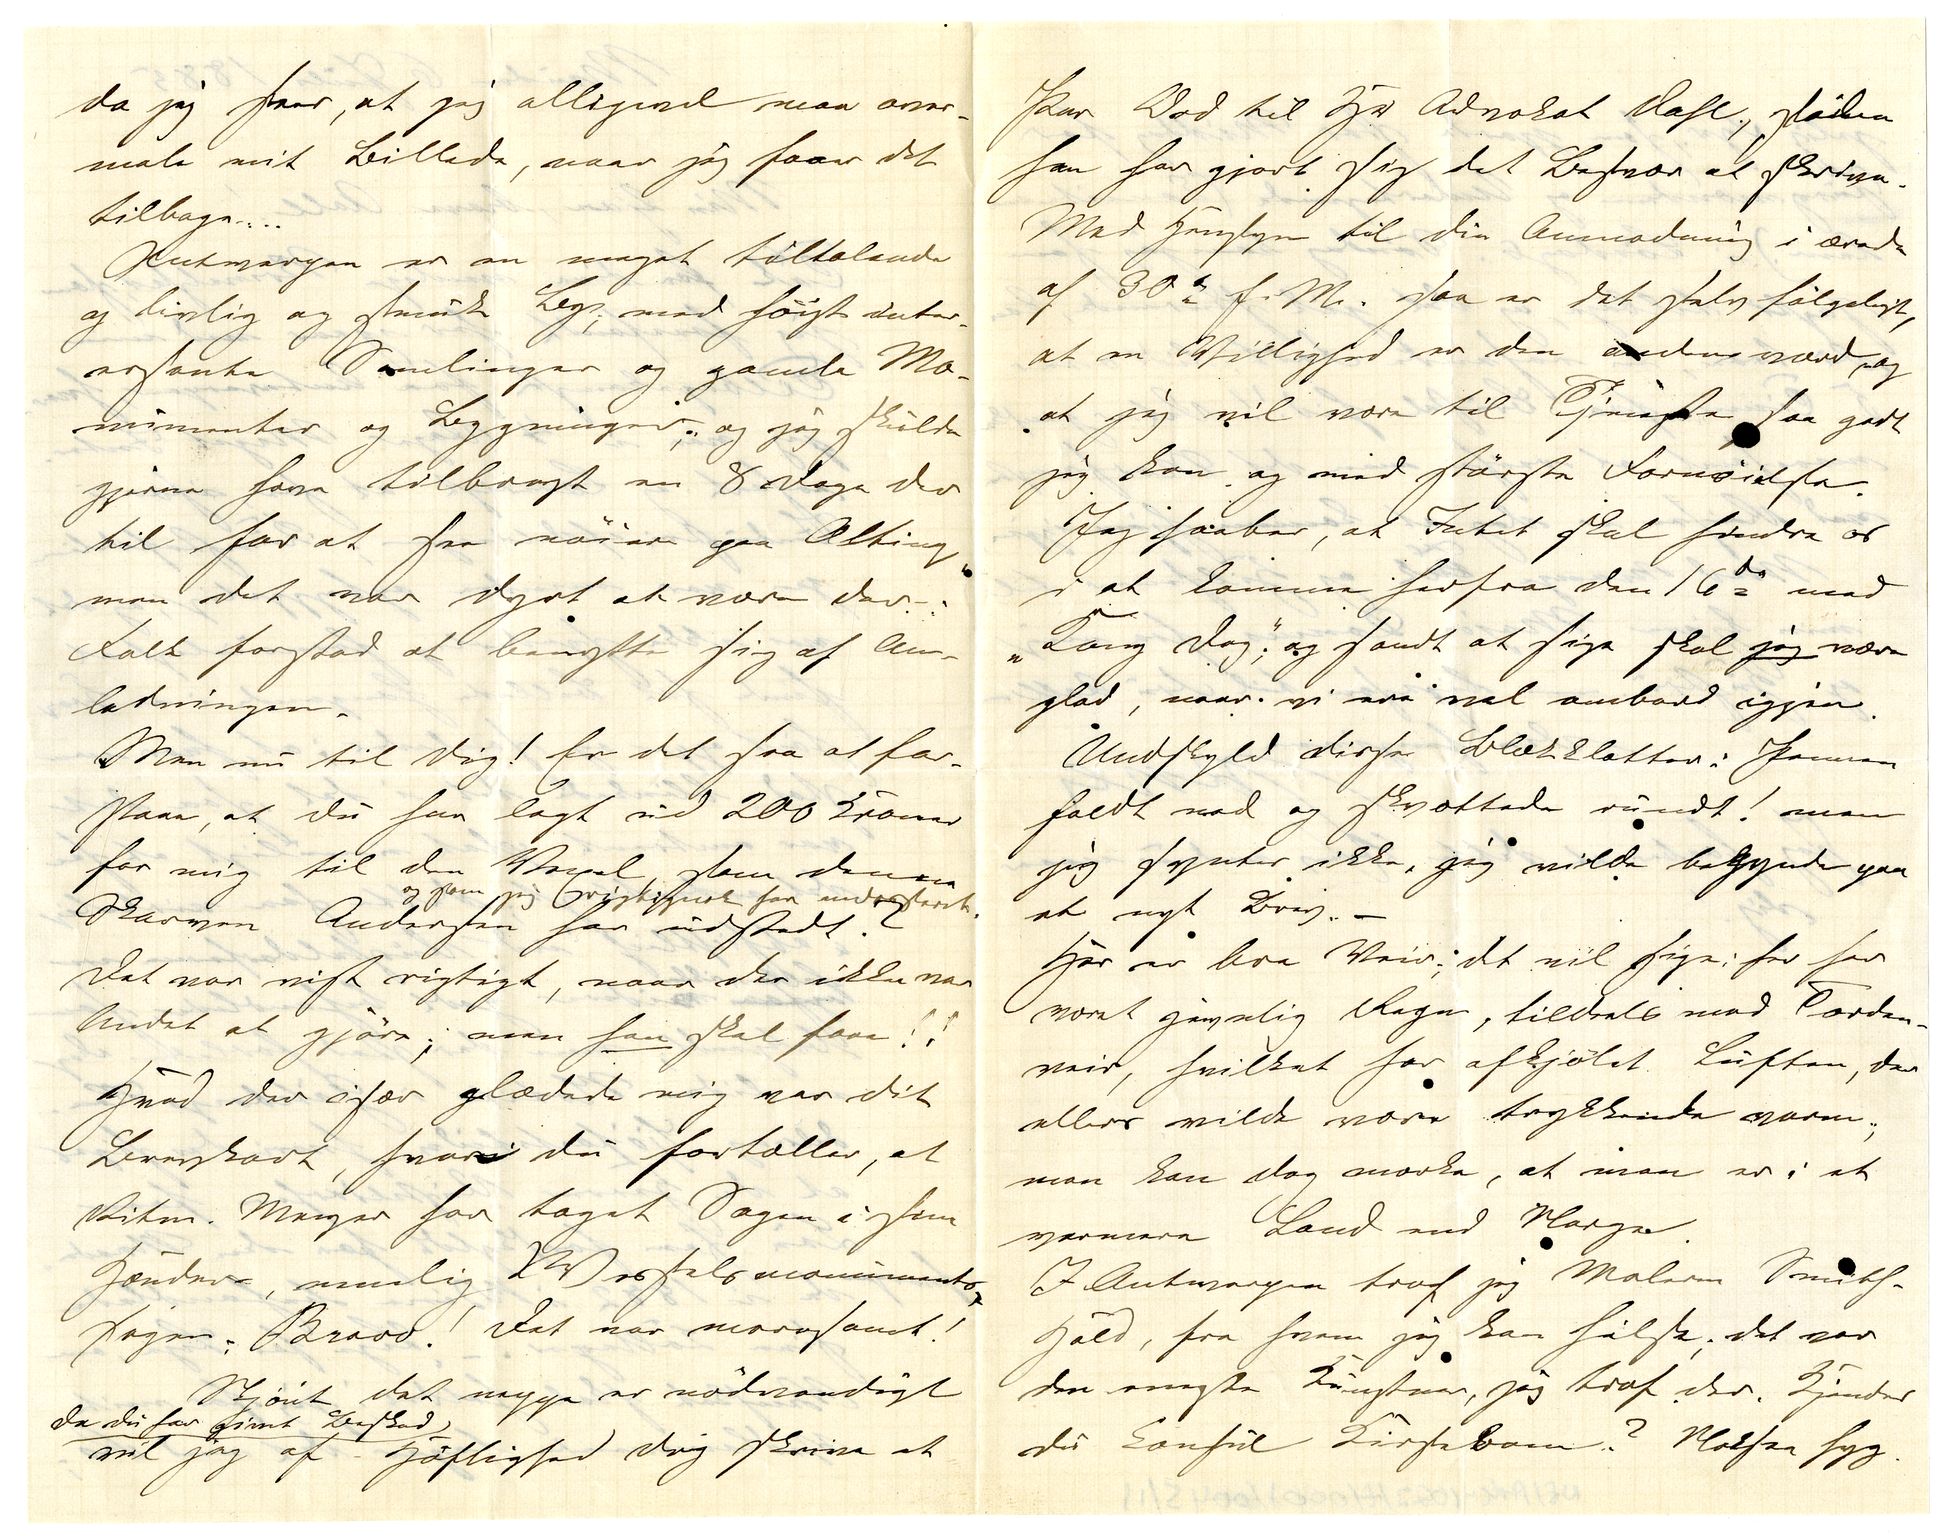 da jeg ser, at jeg alligevel maa over-
male mit Billede, naar jeg faaer det
tilbage....
Antwerpen er en meget tiltalende
og livlig og smuk By; med höist inter-
essante Samlinger og gamle Mo-
numenter og Bygninger; og jeg skulde
gjerne have tilbragt en 8 Dage der
til for at see nöiere paa Alting,
men det var dyrt at være der.:
Folk forstod at benytte sig af An-
ledningen.
Men nu til Dig! Er det saa at for-
staae, at du har lagt ud 200 Kroner
for mig til den Vexel, som denne
og som jeg rigtignok har underskrevet.
Skarven Andersen har udstedt?
Det var vist rigtigt, naar der ikke var
Andet at gjöre; men han skal faae!!
Hvad der især glædede mig var dit
Brevkort, hvori du fortæller, at
Ritm. Meyer har taget Sagen i sine
Hænder, nemlig Wesselsmonuments-
sagen. Bravo! Det var morsomt!
Skjönt det neppe er nödvendigt
da du har hint Besked,
vil jeg af Höflighed dog skrive et
Par Ord til Hr Advokat Dahl, siden
han har gjort sig det Besvær at skrive.
Med Hensyn til din Anmodning i ærede
af 30te f. M. saa er det selvfölgeligt,
at en Villighed er den anden værd, og
at jeg vil være til Tjeneste saa godt
jeg kan og med störste Fornöielse.
Jeg haaber, at Intet skal hindre os
i at komme herfra den 16de med
"Kong Dag"; og sandt at sige skal jeg være
glad, naar vi ere vel ombord igjen.
Undskyld disse Blækklatter: Pennen
faldt ned og skvættede rundt! men
jeg synter ikke, jeg vilde begynde paa
et nyt Brev. -
Her er bra Veir; det vil sige: her har
været jevnlig Regn, tildeels med Torden-
veir, hvilket har afkjölet Luften, der
ellers vilde være trykkende varm;
man kan dog mærke, at man er i et
varmere Land end Norge.
I Antwerpen traf jeg Maleren Smith-
Hald, fra hvem jeg kan hilse; det var
den eneste Kunstner, jeg traf der. Kjender
du Konsul Kirsebom? Noksaa hyg.